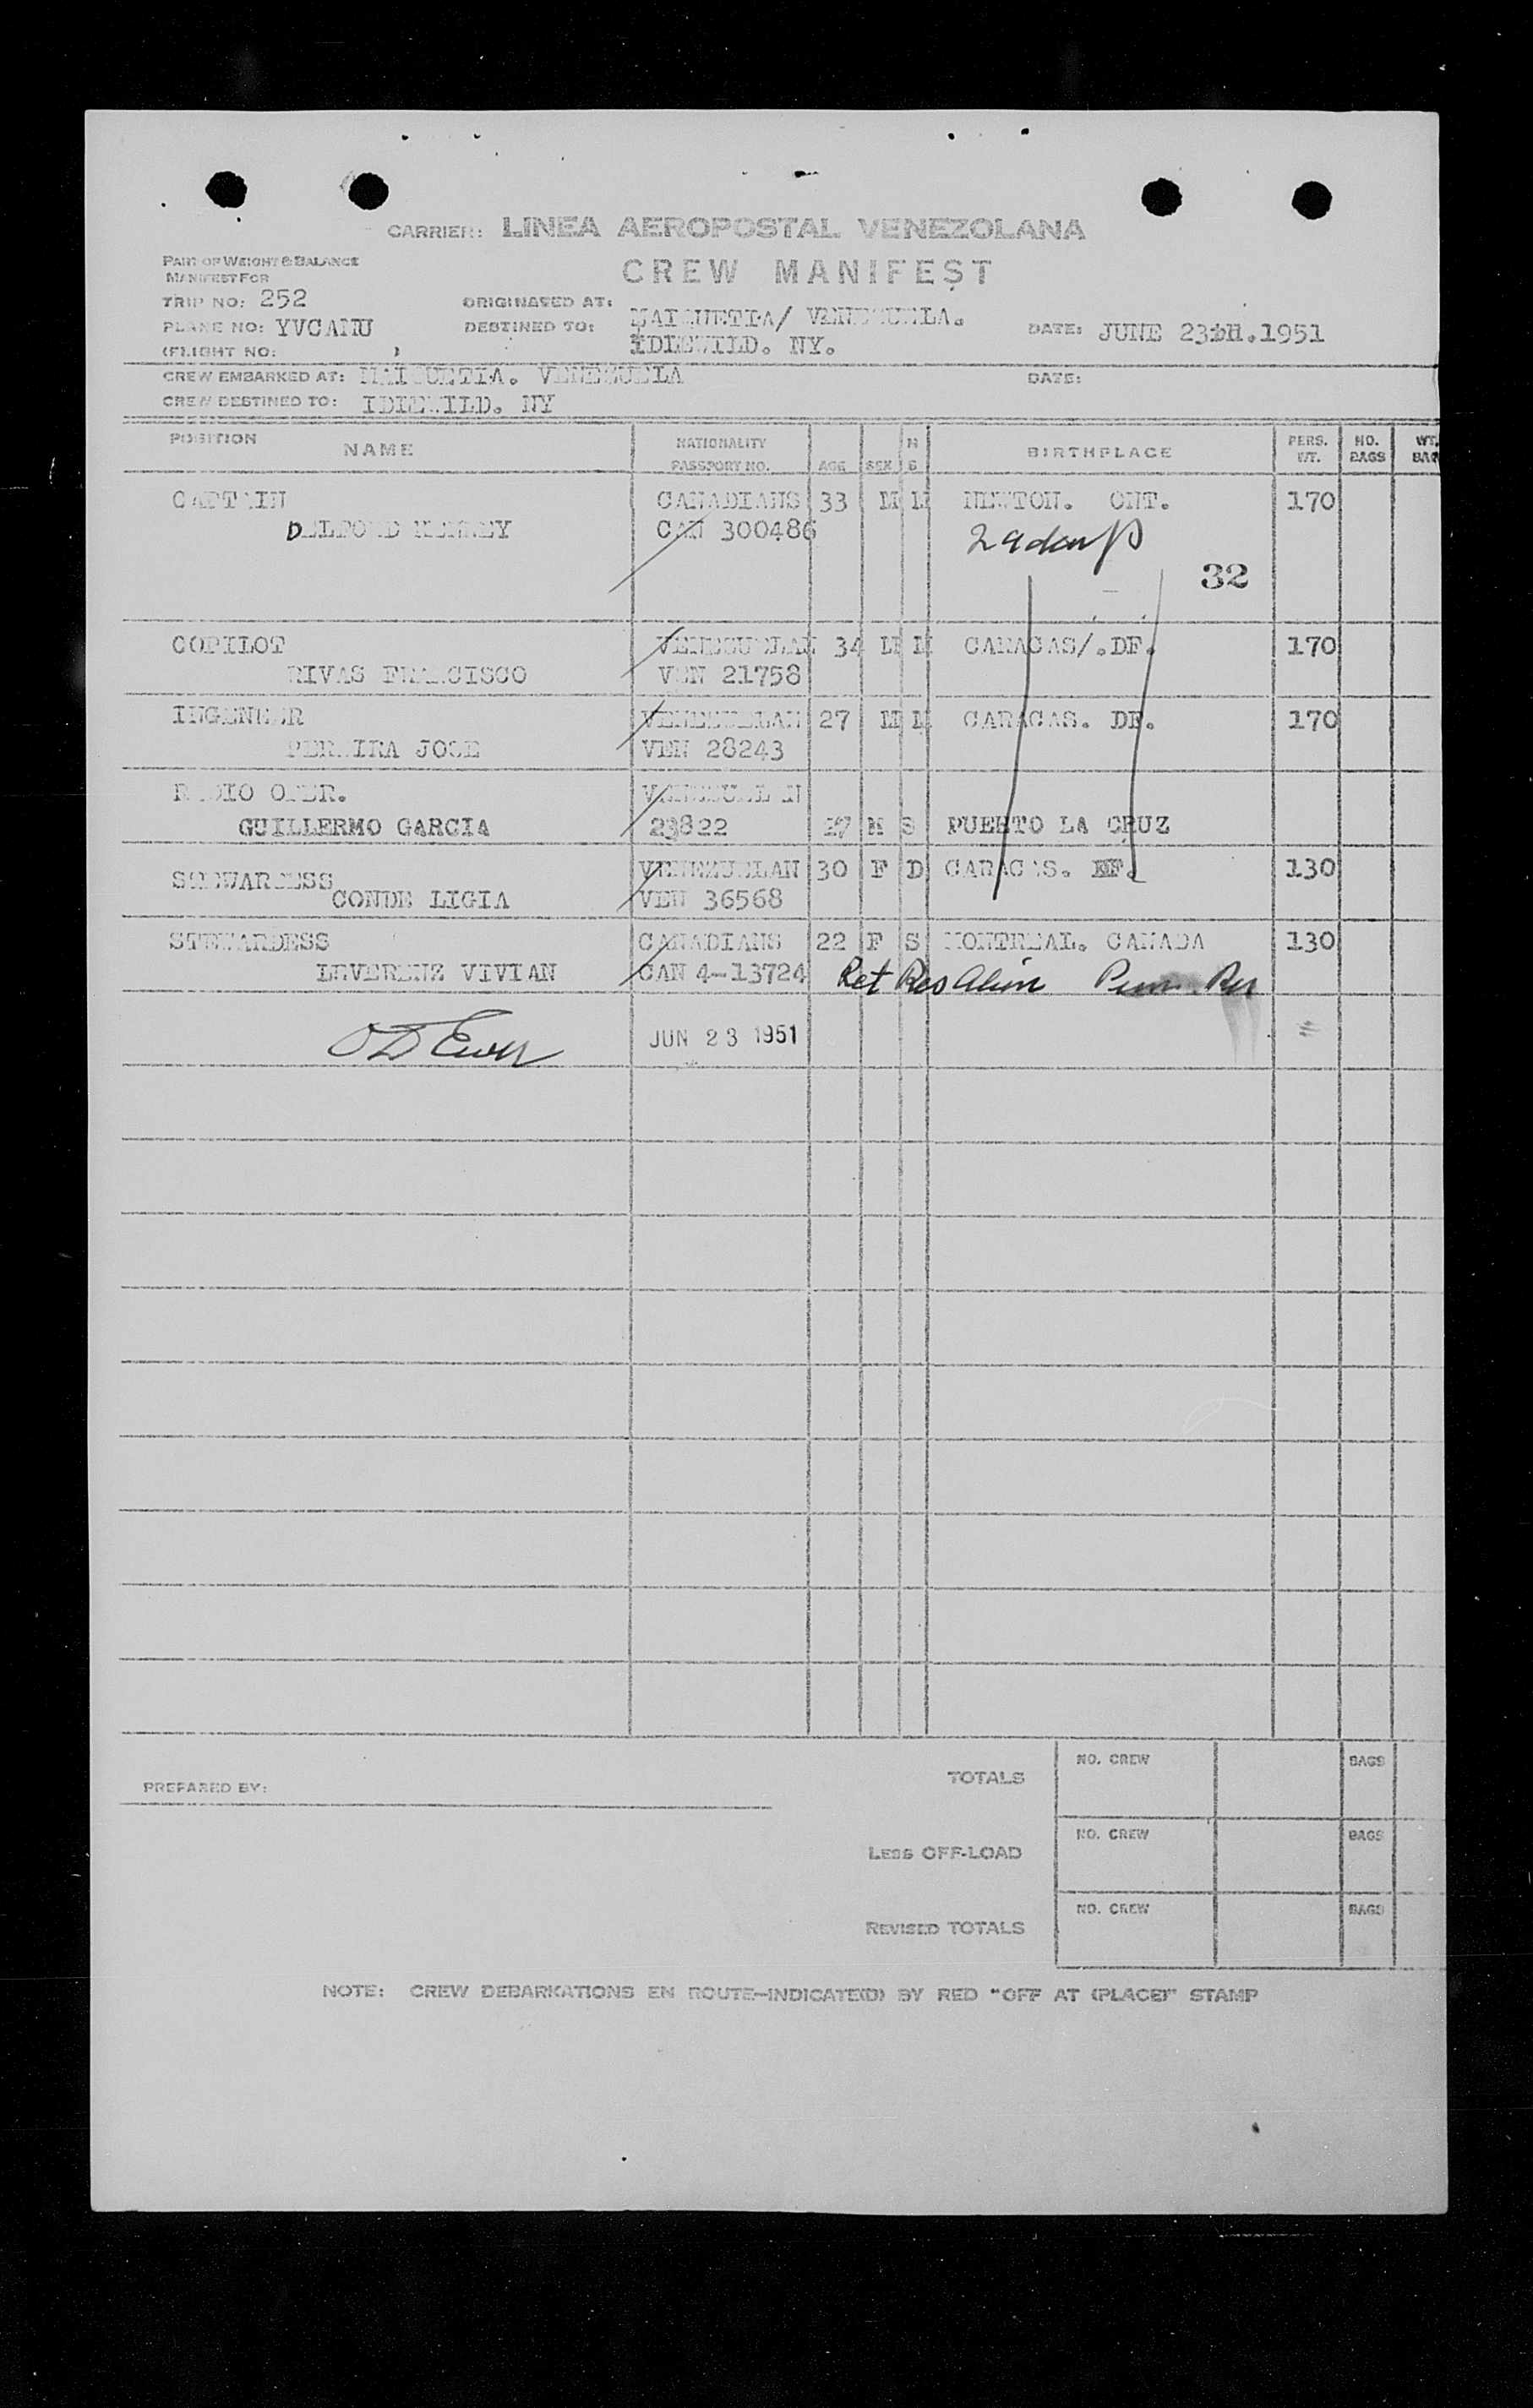 CARRIER: LINEA AEROPOSTAL VENEZOLANA
PART OF WEIGHT & BALANCE
MANIFEST FOR
CREW MANIFEST
TRIP NO: 252
ORIGINATED AT: MAIQUETIA/ VENEZUELA.
PLANE NO: YVCAMU
DESTINED TO: IDLEWILD. NY.
DATE: JUNE 23TH.1951
(FLIGHT NO: )
CREW EMBARKED AT: MAIQUETIA. VENEZUELA
DATE:
CREW DESTINED TO: IDLEWILD. NY
POSITION NAME NATIONALITY PASSPORT NO. AGE SEX M S BIRTHPLACE PERS. WT. NO. BAGS WT. BAG
CAPTAIN CANADIANS 33 M M NEWTON. ONT. 170
CAN 300486 29 days
32
COPILOT VENEZUELAN 34 M M CARACAS/.DF. 170
RIVAS FRANCISCO VEN 21758
INGENEER VENEZUELAN 27 M M CARACAS. DF. 170
PEREIRA JOSE VEN 28243
RADIO OPER. VENEZUELAN
GUILLERMO GARCIA 23822 27 M S PUERTO LA CRUZ
STEWARDESS VENEZUELAN 30 F D CARACAS. DF. 130
CONDE LIGIA VEN 36568
STEWARDESS CANADIANS 22 F S MONTREAL. CANADA 130
LEVERENZ VIVIAN CAN 4-13724 Ret Res Alien
JUN 23 1951
PREPARED BY:
TOTALS NO. CREW BAGS
LESS OFF-LOAD NO. CREW BAGS
REVISED TOTALS NO. CREW BAGS
NOTE: CREW DEBARKATIONS EN ROUTE-INDICATE(D) BY RED "OFF AT (PLACE)" STAMP